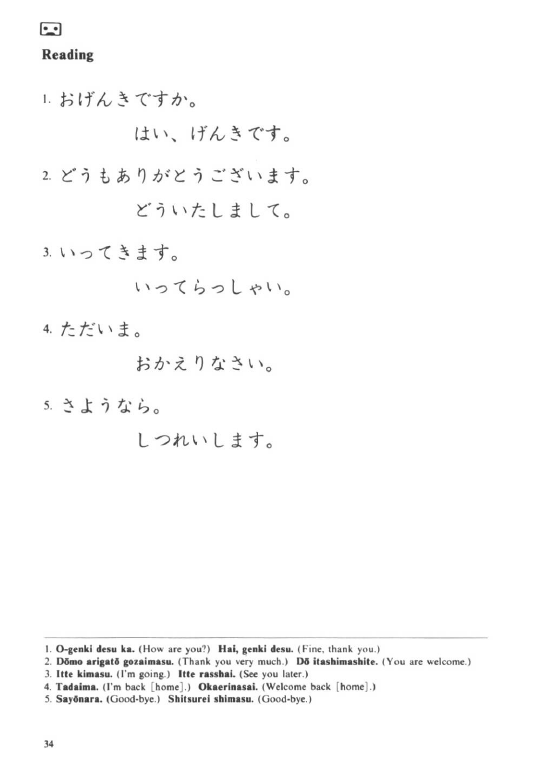 Reading
1. おげんきですか。
はい、げんきです。
2. どうもありがとうございます。
どういたしまして。
3. いってきます。
いってらっしゃい。
4. ただいま。
おかえりなさい。
5. さようなら。
しつれいします。
1. O-genki desu ka. (How are you?) Hai, genki desu. (Fine, thank you.)
2. Dōmo arigatō gozaimasu. (Thank you very much.) Dō itashimashite. (You are welcome.)
3. Itte kimasu. (I'm going.) Itte rasshai. (See you later.)
4. Tadaima. (I'm back [home].) Okaerinasai. (Welcome back [home].)
5. Sayōnara. (Good-bye.) Shitsurei shimasu. (Good-bye.)
34